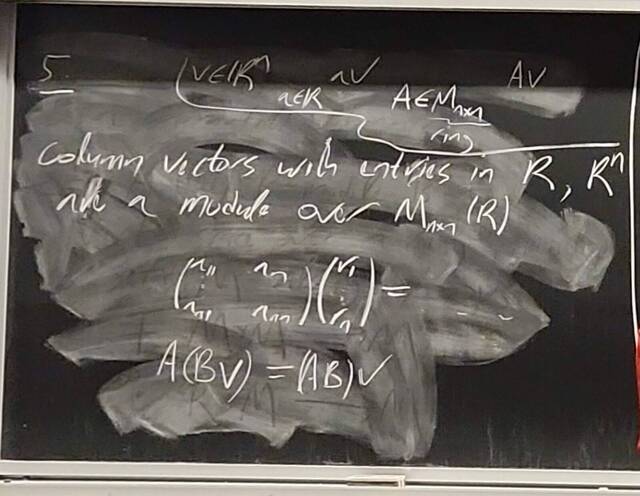 5.
v∈ℝⁿ aV AV
a∈R A∈Mₙₓₙ
ring
Column vectors with entries in R, Rⁿ
are a module over Mₙₓₙ(R)
(a₁₁ aₙ) (v₁) =
(⋮) (⋮)
(aₙ₁ aₙₙ) (vₙ) ...
A(Bv) = (AB)v